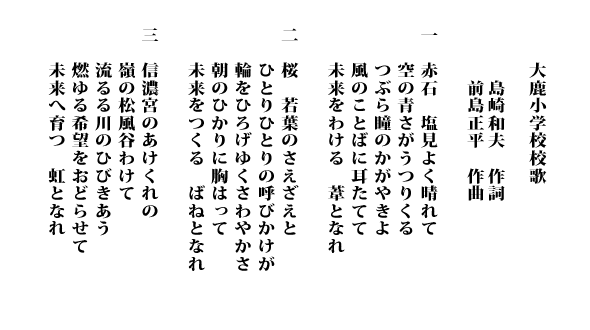 大鹿小学校校歌
島崎和夫　作詞
前島正平　作曲
一　赤石　塩見よく晴れて
空の青さがうつりくる
つぶら瞳のかがやきよ
風のことばに耳たてて
未来をわける　葦となれ
二　桜　若葉のさえざえと
ひとりひとりの呼びかけが
輪をひろげゆくさわやかさ
朝のひかりに胸はって
未来をつくる　ばねとなれ
三　信濃宮のあけくれの
嶺の松風谷わけて
流るる川のひびきあう
燃ゆる希望をおどらせて
未来へ育つ　虹となれ